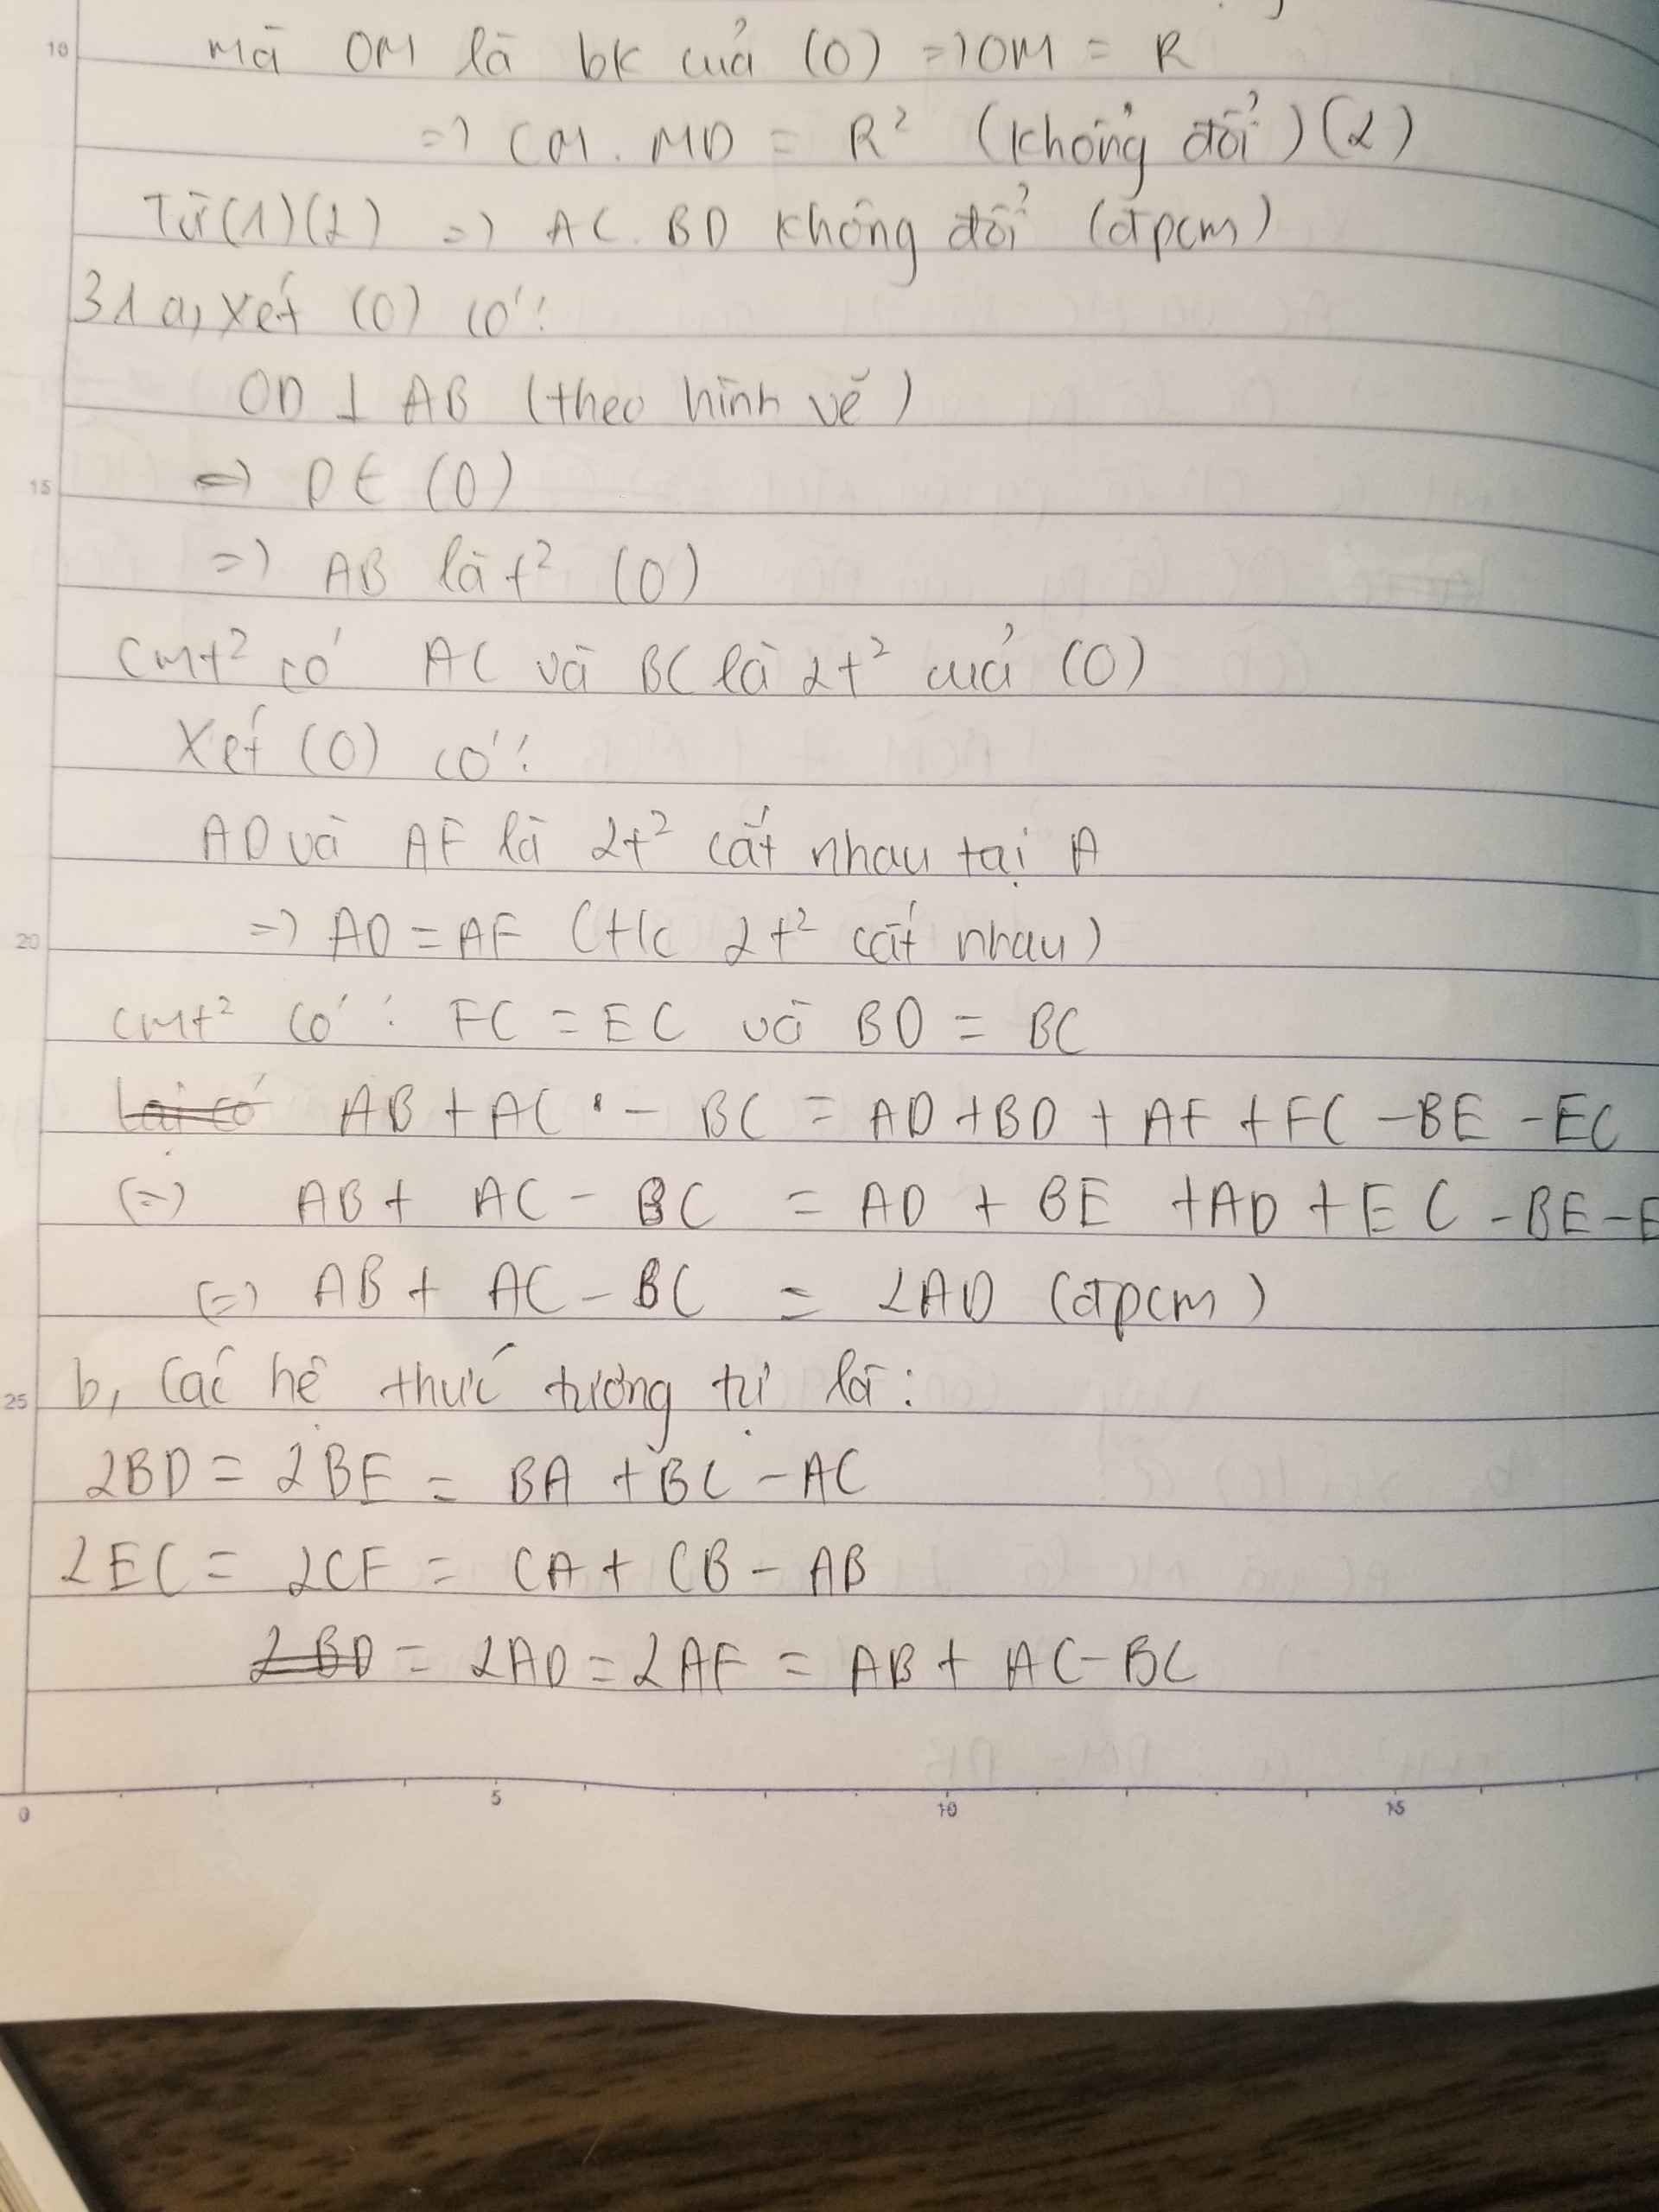 mà OM là bk của (O) => OM = R
=> CM . MD = R² (không đổi) (2)
Từ (1) (2) => AC . BD không đổi (đpcm)
31 a, Xét (O) có:
OD ⊥ AB (theo hình vẽ)
=> D ∈ (O)
=> AB là t² (O)
cmt² có AC và BC là 2t² của (O)
Xét (O) có:
AD và AF là 2t² cắt nhau tại A
=> AD = AF (t/c 2t² cắt nhau)
cmt² có : FC = EC và BD = BC
Lại có AB + AC - BC = AD + BD + AF + FC - BE - EC
(=) AB + AC - BC = AD + BE + AD + EC - BE - E
(=) AB + AC - BC = 2AD (đpcm)
b, Các hệ thức tương tự là:
2BD = 2BE = BA + BC - AC
2EC = 2CF = CA + CB - AB
2BD = 2AD = 2AF = AB + AC - BC
10
15
20
25
0 5 10 15